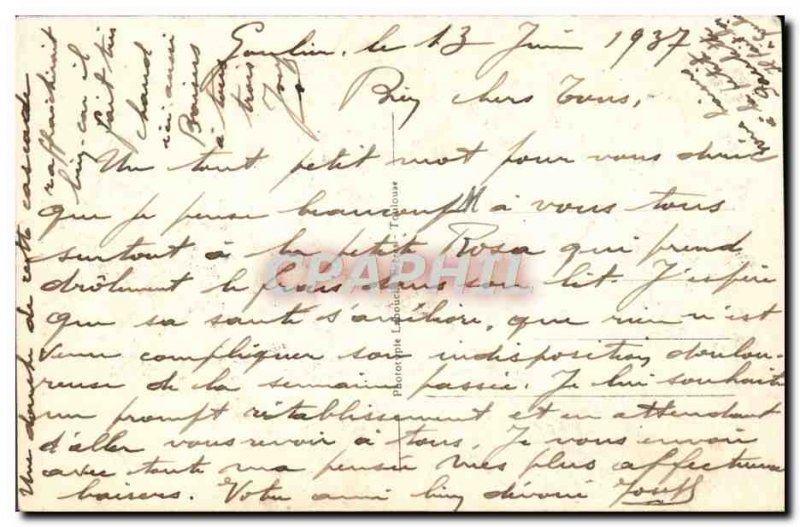 le 13 Juin 1937
Bien chers Tous,
Un tout petit mot pour vous dire
que je pense beaucoup à vous tous
surtout à la petite Rosa qui prend
drôlement le frais dans son lit. J'espère
que sa santé s'améliore, que rien n'est
venu compliquer son indisposition doulou-
reuse de la semaine passée. Je lui souhaite
un prompt rétablissement et en attendant
d'aller vous revoir à tous, Je vous envoie
avec toute ma pensée mes plus affectueux
baisers. Votre ami bien dévoué
Une douche de cette cascade
rafraîchirait
bien car il
fait très
chaud
ici aussi
Baisers
à tous
trois
Phototypie Labouche Frères, Toulouse
CPAPHIL